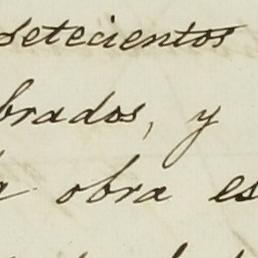 setecientos
brados, y
a obra es